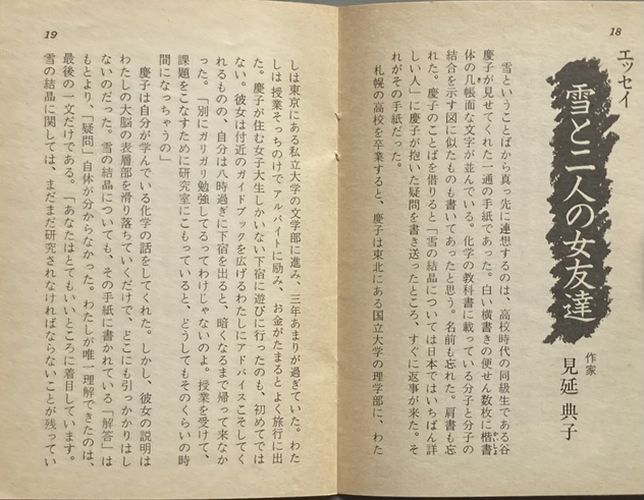 18
エッセイ
雪と二人の女友達
作家
見延典子
雪ということばから真っ先に連想するのは、高校時代の同級生である谷
慶子が見せてくれた一通の手紙であった。白い横書きの便せん数枚に楷書
かいしょ
体の几帳面な文字が並んでいる。化学の教科書に載っている分子と分子の
結合を示す図に似たものも書いてあったと思う。名前も忘れた。肩書も忘
れた。慶子のことばを借りると「雪の結晶については日本ではいちばん詳
しい人」に慶子が抱いた疑問を書き送ったところ、すぐに返事が来た。そ
れがその手紙だった。
札幌の高校を卒業すると、慶子は東北にある国立大学の理学部に、わた
19
しは東京にある私立大学の文学部に進み、三年あまりが過ぎていた。わた
しは授業そっちのけでアルバイトに励み、お金がたまるとよく旅行に出
た。慶子が住む女子大生しかいない下宿に遊びに行ったのも、初めてでは
ない。彼女は付近のガイドブックを広げるわたしにアドバイスこそしてく
れるものの、自分は八時過ぎに下宿を出ると、暗くなるまで帰って来なか
った。「別にガリガリ勉強してるってわけじゃないのよ。授業を受けて、
課題をこなすために研究室にこもっていると、どうしてもそのくらいの時
間になっちゃうの」
慶子は自分が学んでいる化学の話をしてくれた。しかし、彼女の説明は
わたしの大脳の表層部を滑り落ちていくだけで、どこにも引っかかりはし
ないのだった。雪の結晶についても、その手紙に書かれている「解答」は
もとより、「疑問」自体が分からなかった。わたしが唯一理解できたのは、
最後の一文だけである。「あなたはとてもいいところに着目しています。
雪の結晶に関しては、まだまだ研究されなければならないことが残ってい